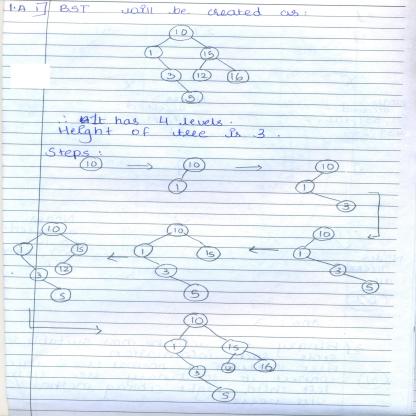 1.A i] BST will be created as:
10
1 15
3 12 16
5
∴ It has 4 levels.
Height of tree is 3.
Steps:
10 → 10 → 10
1 1
3
10 10 10
1 15 ← 1 15 ← 1
3 12 3 3
5 5 5
10
1 15
3 12 16
5